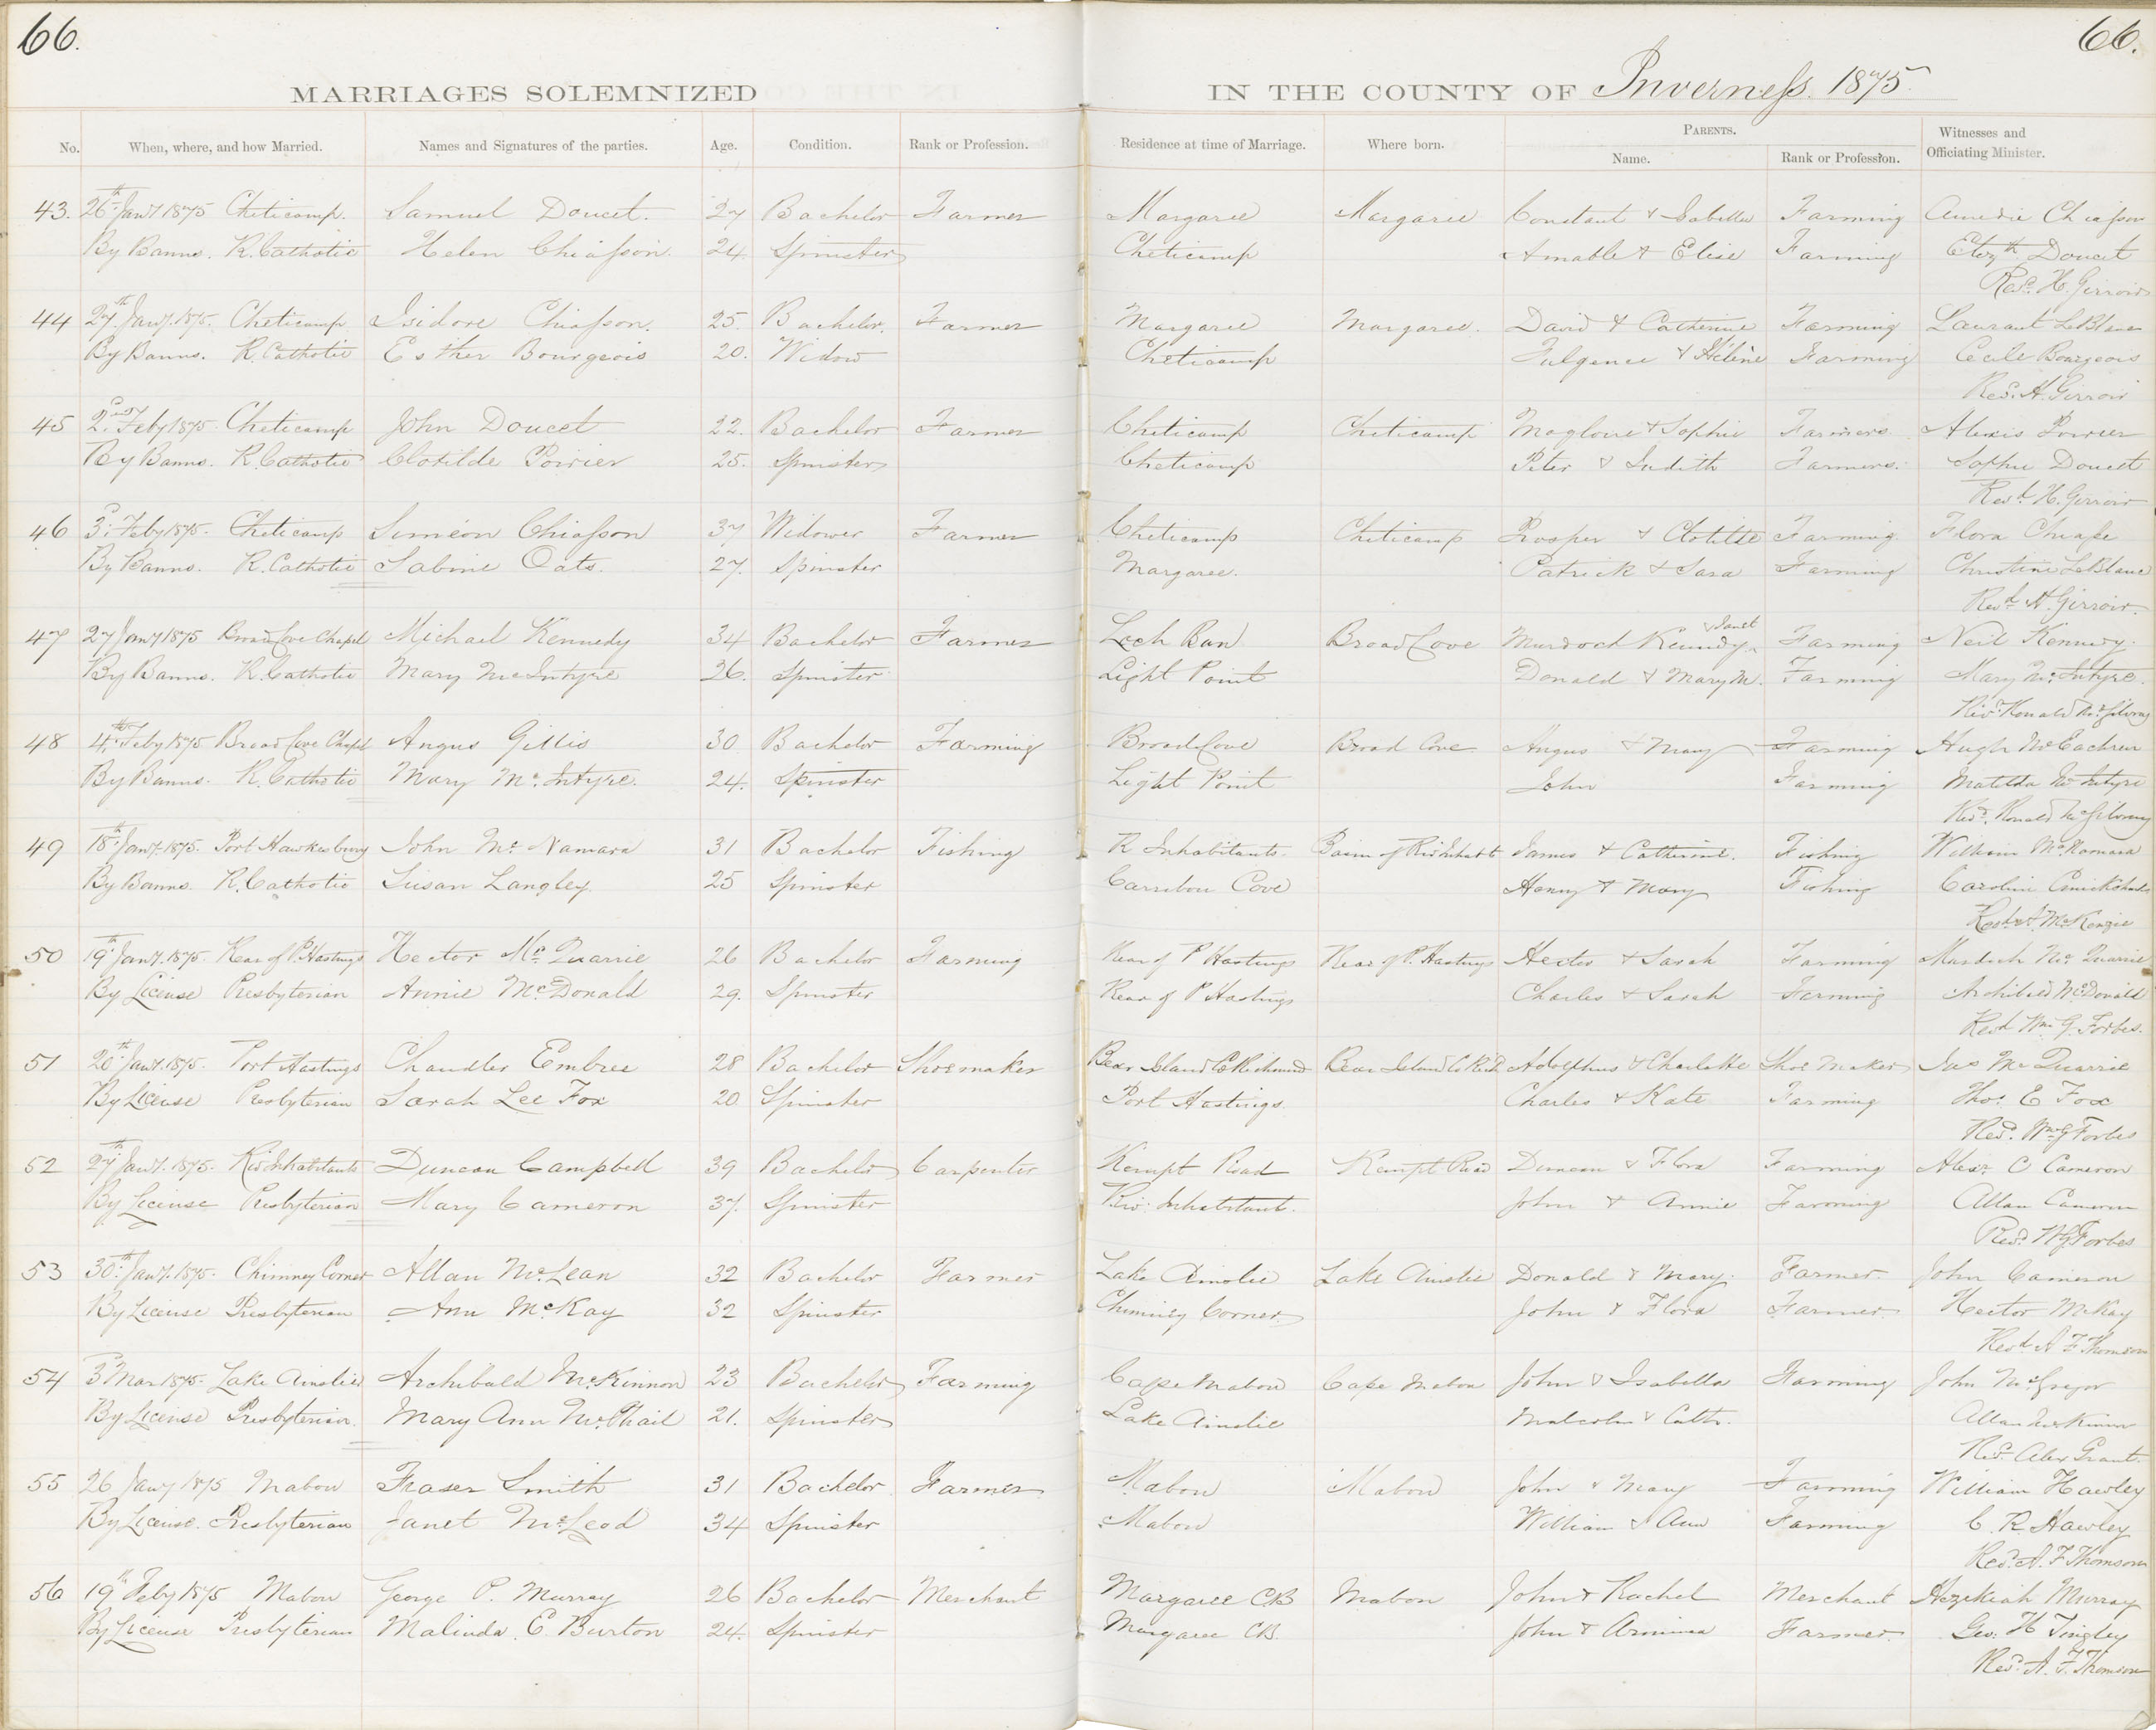 66.
66.
MARRIAGES SOLEMNIZED IN THE COUNTY OF Inverness 1875.
No. When, where, and how Married. Names and Signatures of the parties. Age. Condition. Rank or Profession. Residence at time of Marriage. Where born. PARENTS. Witnesses and
Name. Rank or Profession. Officiating Minister.
43. 26th Jany 1875 Cheticamp. Samuel Doucet. 27 Bachelor Farmer Margaree Margaree Constant & Isabella Farming Amedie Chiasson
By Banns. R. Catholic Helen Chiasson. 24 Spinster Cheticamp Amable & Elise Farming Elizth Doucet
Revd. H. Girroir
44 27th Jany. 1875. Cheticamp Isidore Chiasson. 25. Bachelor. Farmer Margaree Margaree. David & Catherine Farming Laurant LeBlanc
By Banns. R. Catholic Esther Bourgeois 20. Widow Cheticamp Fulgence & Hélène Farming Cecile Bourgeois
Revd. H. Girroir
45 2nd Feby 1875. Cheticamp John Doucet 22. Bachelor Farmer Cheticamp Cheticamp Magloire & Sophie Farmers Alexis Poirier
By Banns. R. Catholic Clotilde Poirier 25. Spinster Cheticamp Peter & Judith Farmers. Sophie Doucet
Revd H. Girroir
46 3d. Feby 1875. Cheticamp Simeon Chiasson 37 Widower Farmer Cheticamp Cheticamp Prosper & Clotilde Farming. Flora
By Banns. R. Catholic Sabine Oats. 27. Spinster Margaree. Patrick & Sara Farming Christine LeBlanc
Revd H. Girroir.
47 27 Jany 1875 Broad Cove Chapel Michael Kennedy 34 Bachelor Farmer Loch Ban Broad Cove Murdoch Kennedy & Janet Farming Neil Kennedy.
By Banns. R. Catholic Mary McIntyre 26. Spinster Light Point Donald & Mary M. Farming Mary McIntyre.
Revd. Ronald McGilvray
48 4th Feby 1875 Broad Cove Chapel Angus Gillis 30 Bachelor Farming Broad Cove Broad Cove Angus & Mary Farming Hugh McEachren
By Banns. R. Catholic Mary McIntyre. 24. Spinster Light Point John Farming Matilda McIntyre
Revd. Ronald McGilvray
49 18th Jany. 1875. Port Hawkesbury John McNamara 31 Bachelor Fishing R Inhabitants Basin of Riv Inhabts James & Catherine. Fishing William McNamara
By Banns. R. Catholic Susan Langley. 25 Spinster Carribou Cove Henry & Mary Fishing Caroline
McKenzie
50 19th Jany. 1875. Rear of P. Hastings Hector McQuarrie 26 Bachelor Farming Rear of P Hastings Rear of P. Hastings Hector & Sarah Farming Murdoch McQuarrie
By License Presbyterian Annie McDonald 29. Spinster Rear of P Hastings Charles & Sarah Farming Archibald McDonald
Revd Wm. G. Forbes.
51 20th Jany. 1875. Port Hastings Chandler Embree 28 Bachelor Shoemaker Bear Island C Richmond Bear Island C Richd Adolphus & Charlotte Shoe Maker Jas McQuarrie
By License Presbyterian Sarah Lee Fox 20 Spinster Port Hastings. Charles & Kate Farming Thos. E Fox
Revd. Wm G Forbes
52 27th Jany. 1875. Riv Inhabitants Duncan Campbell 39 Bachelor Carpenter Kempt Road Kempt Road Duncan & Flora Farming Alexr C Cameron
By License Presbyterian Mary Cameron 37. Spinster Riv. Inhabitant. John & Annie Farming Allan Cameron
Revd. WG Forbes
53 30th Jany. 1875. Chimney Corner Allan McLean 32 Bachelor Farmer Lake Ainslie Lake Ainslie Donald & Mary. Farmer John Cameron
By License Presbyterian Ann McKay 32 Spinster Chimney Corner. John & Flora Farmer. Hector McKay
Revd A F Thomson
54 3d Mar 1875. Lake Ainslie Archibald McKinnon 23 Bachelor Farming Cape Mabou Cape Mabou John & Isabella Farming John McGregor
By License Presbyterian. Mary Ann McPhail 21. Spinster Lake Ainslie Malcolm & Cath. Allan McKinnon
Revd. Alex Grant.
55 26 Jany 1875 Mabou Fraser Smith 31 Bachelor Farmer Mabou Mabou John & Mary Farming William Hawley
By License. Presbyterian Janet McLeod 34 Spinster Mabou William & Ann Farming C. R. Hawley
Revd. A. F Thomson
56 19th Feby 1875 Mabou George P. Murray 26 Bachelor Merchant Margaree CB Mabou John & Rachel Merchant Hezekiah Murray
By License Presbyterian Malinda E. Burton 24. Spinster Margaree CB. John & Armina Farmer. Geo. H Tingley
Revd. A. F. Thomson